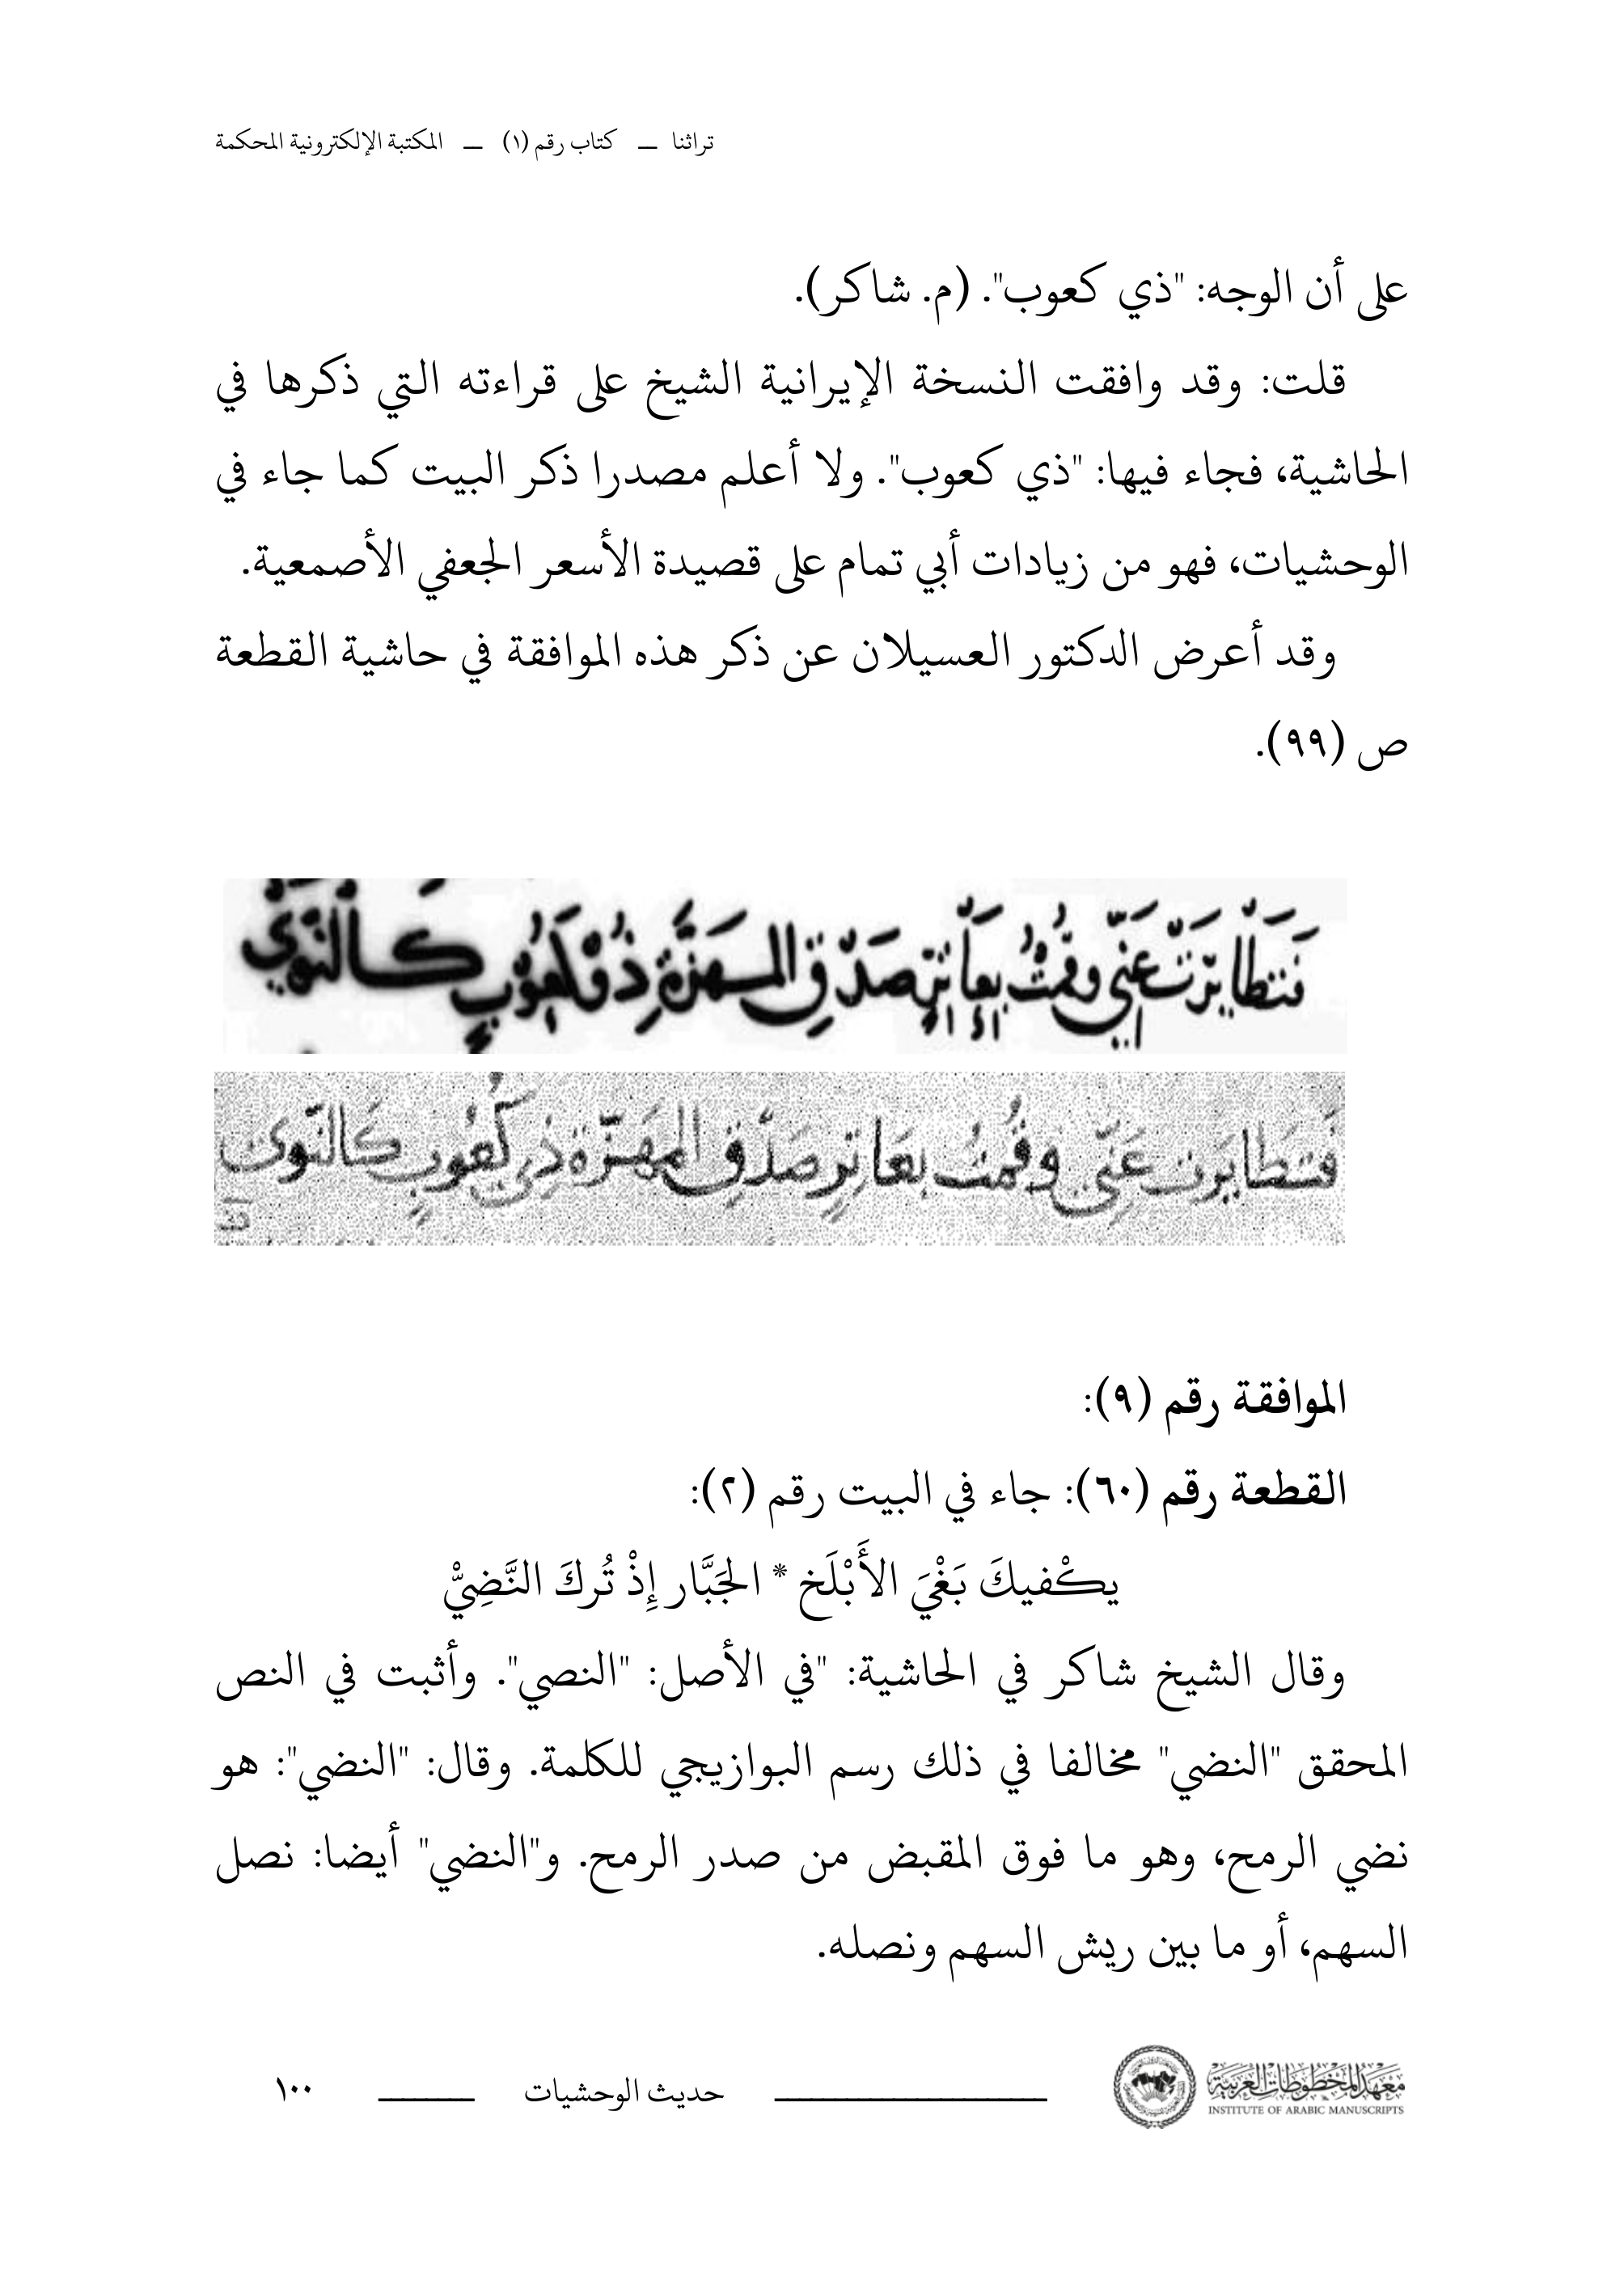 تراثنا ــ كتاب رقم (١) ــ المكتبة الإلكترونية المحكمة
على أن الوجه: "ذي كعوب". (م. شاكر).
قلت: وقد وافقت النسخة الإيرانية الشيخ على قراءته التي ذكرها في
الحاشية، فجاء فيها: "ذي كعوب". ولا أعلم مصدرا ذكر البيت كما جاء في
الوحشيات، فهو من زيادات أبي تمام على قصيدة الأسعر الجعفي الأصمعية.
وقد أعرض الدكتور العسيلان عن ذكر هذه الموافقة في حاشية القطعة
ص (٩٩).
فتطايرت عني وقمت بعاتر صدق المهزة ذو كعوب كالنوى
فتطايرت عني وقمت بعاتر صدق المهزة ذي كعوب كالنوى
الموافقة رقم (٩):
القطعة رقم (٦٠): جاء في البيت رقم (٢):
يكْفيكَ بَغْيَ الأَبْلَخ * الجَبَّار إِذْ تُركَ النَّضِيُّ
وقال الشيخ شاكر في الحاشية: "في الأصل: "النصي". وأثبت في النص
المحقق "النضي" مخالفا في ذلك رسم البوازيجي للكلمة. وقال: "النضي": هو
نضي الرمح، وهو ما فوق المقبض من صدر الرمح. و"النضي" أيضا: نصل
السهم، أو ما بين ريش السهم ونصله.
معهد المخطوطات العربية
INSTITUTE OF ARABIC MANUSCRIPTS
حديث الوحشيات
١٠٠